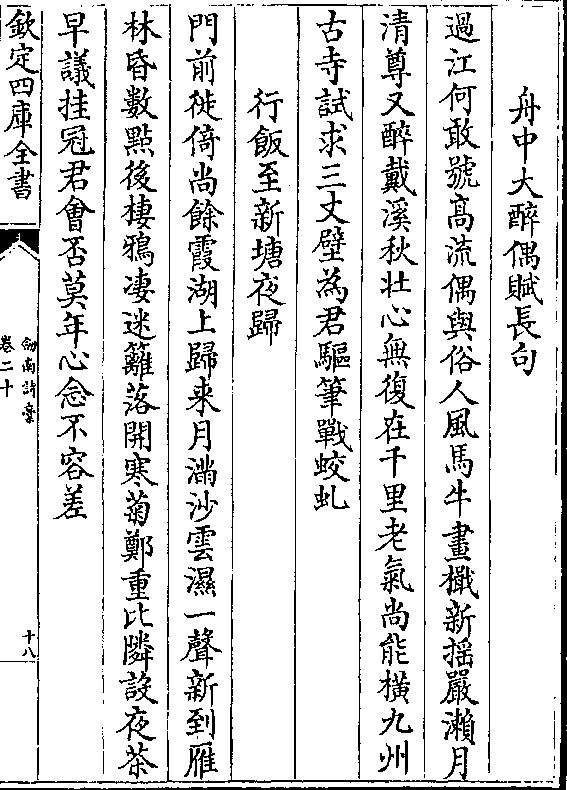 舟中大醉偶賦長句
過江何敢號高流偶與俗人風馬牛畫檝新揺嚴瀨月
清尊又醉戴溪秋壮心無復在千里老氣尚能橫九州
古寺試求三丈壁為君驅筆戰蛟虬
行飯至新塘夜歸
門前徙倚尚餘霞湖上歸来月滿沙雲濕一聲新到雁
林昏數點後棲鴉凄迷籬落開寒菊鄭重比隣設夜茶
早議挂冠君會否莫年心念不容差
欽定四庫全書
劒南詩稾
卷二十
十八